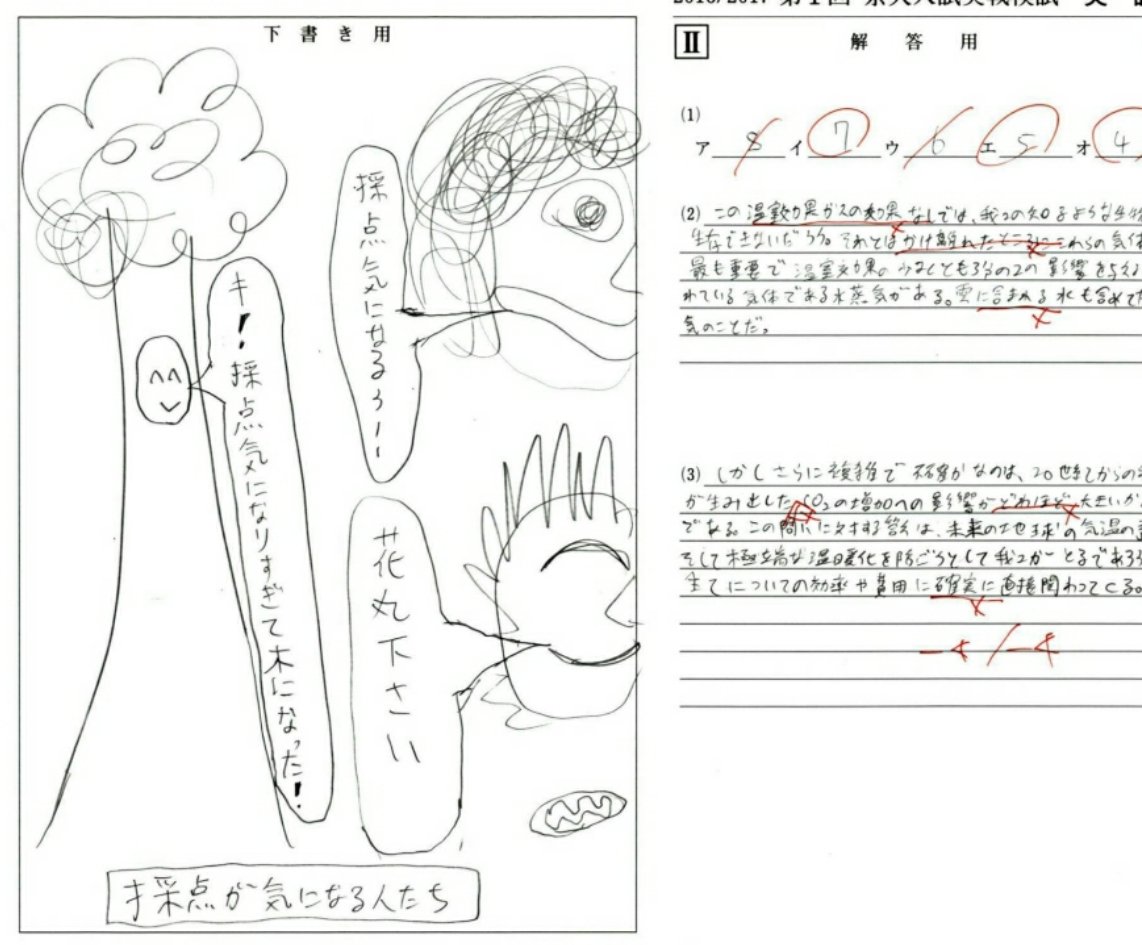 下書き用
採点気になるぅーー
キ！！採点気になりすぎて木になった！
花丸下さい
採点が気になる人たち
2016/2017 第1回 京大入試実戦模試
Ⅱ 解答用
(1)
ア 8 イ 7 ウ 6 エ 5 オ 4
(2) この温室効果ガスの効果なしでは、我々の知るような生物
生存できないだろう。それとはかけ離れたところにこれらの気体
最も重要で温室効果の少なくとも3分の2の影響を与え
われている気体である水蒸気がある。雲に含まれる水も含めて
気のことだ。
(3) しかしさらに複雑で なのは、20世紀からの
が生み出したCO₂の増加への影響がどれほど大きいか
である。この問いに対する答えは、未来の地球の気温の
そして極端な温暖化を防ごうとして我々がとるであろう
全てについての効率や費用に確実に直接関わってくる。
-4 / -4